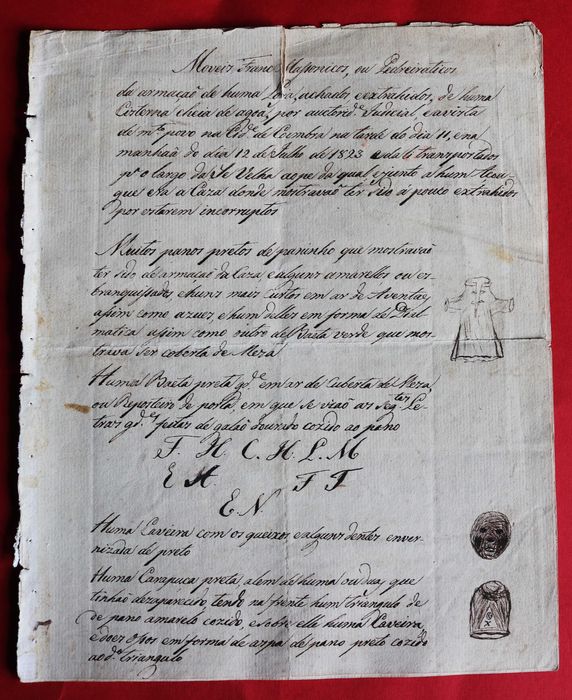 Moveis Franc Massonicos, ou Pedreiraticos
da armação de huma Loxa, achados extrahidos, de huma
Cisterna cheia de agoa, por autorid.e Judicial, e a vista
de m.to povo na Cid.e de Coimbra na tarde do dia 11, e na
manhaã do dia 12 de Julho de 1823 e dali transportados
p.a o largo da Sé Velha ao pe da qual, e junto a hum
que era a Caza donde mostravaõ ter sido a pouco extrahidos
por estarem incorruptos
Muitos panos pretos de paninho que mostravaõ
ter sido de armaçaõ da Caza, e alguns amarelos ou es-
branquissados e huns mais curtos em ar de Aventae,
assim como azues e hum delles em forma de Dial-
matica assim como outro de Baeta verde que mos-
trava ser coberta de Meza
Huma Baeta preta gd.e em ar de Cuberta de Meza,
ou Reposteiro de porta, em que se viaõ as seg.tes Le-
tras gd.es feitas de galaõ dourado cozido ao pano
F. H. C. H. L. M
E A. F F
E. N.
Huma Caveira com os queixos e alguns dentes enver-
nizada de preto
Huma Carapuça preta, alem de huma ou duas que
tinhaõ dezaparecido, tendo na frente hum triangulo de
de pano amarelo cozido, e sobre elle huma Caveira,
e dois ossos em forma de aspa de pano preto cozido
ao d.o triangulo